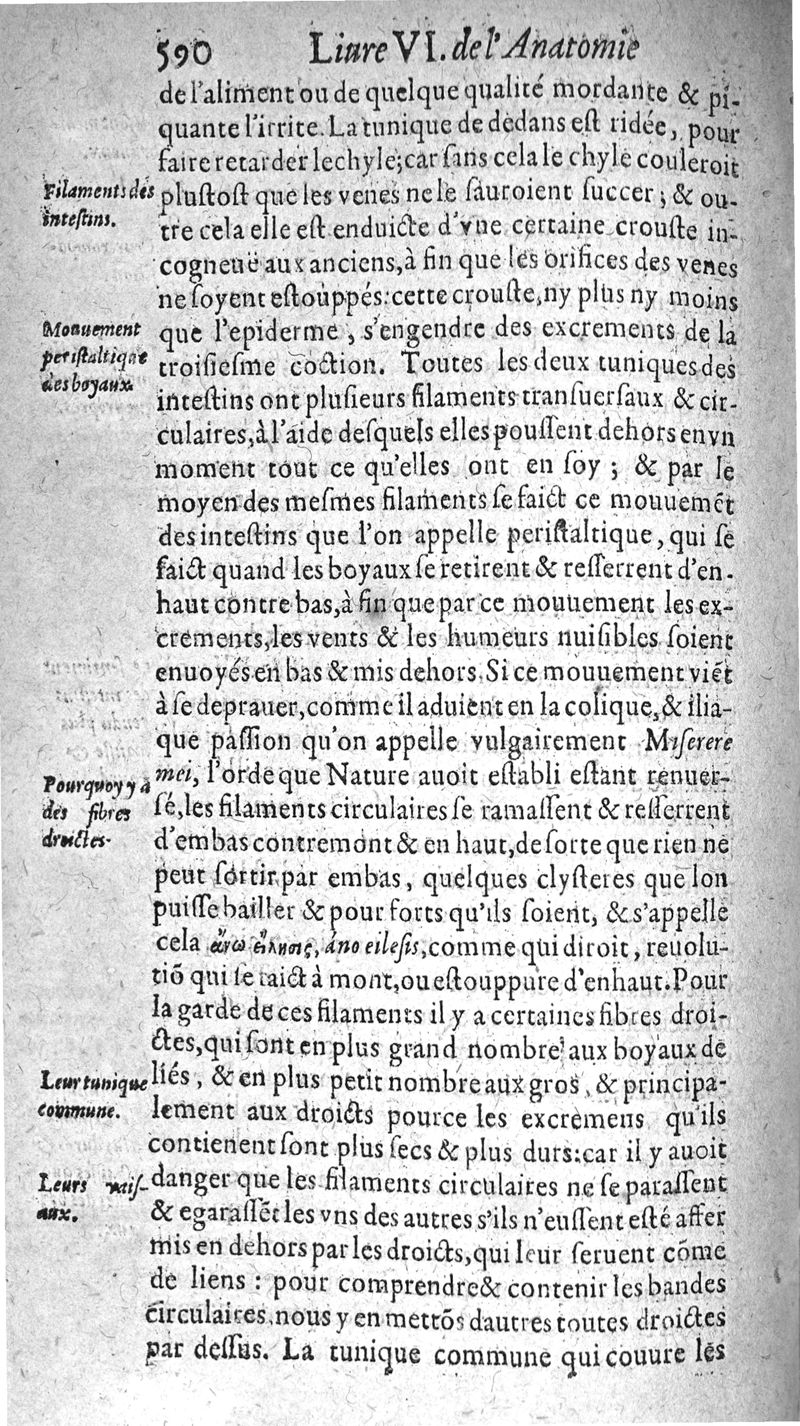 590 Liure VI. de l'Anatomie
de l'aliment ou de quelque qualité mordante & pi-
quante l'irrite. La tunique de dedans est ridée, pour
faire retarder le chyle; car sans cela le chyle couleroit
Filaments des
intestins.
plustost que les venes ne le sauroient succer; & ou-
tre cela elle est enduicte d'vne certaine crouste in-
cogneuë aux anciens, à fin que les orifices des venes
ne soyent estouppés: cette crouste, ny plus ny moins
Mouuement
peristaltique
des boyaux.
que l'epiderme, s'engendre des excrements de la
troisiesme coction. Toutes les deux tuniques des
intestins ont plusieurs filaments transuersaux & cir-
culaires, à l'aide desquels elles poussent dehors en vn
moment tout ce qu'elles ont en soy; & par le
moyen des mesmes filaments se faict ce mouuemẽt
des intestins que l'on appelle peristaltique, qui se
faict quand les boyaux se retirent & resserrent d'en-
haut contre bas, à fin que par ce mouuement les ex-
crements, les vents & les humeurs nuisibles soient
enuoyés en bas & mis dehors. Si ce mouuement viẽt
à se deprauer, comme il aduient en la colique, & ilia-
que passion qu'on appelle vulgairement Miserere
Pourquoy y à
des fibres
droictes.
mei, l'orde que Nature auoit establi estant renuer-
sé, les filaments circulaires se ramassent & resserrent
d'embas contremont & en haut, de sorte que rien ne
peut sortir par embas, quelques clysteres que lon
puisse bailler & pour forts qu'ils soient, & s'appelle
cela ἄνω εἴλησις, áno eilesis, comme qui diroit, reuolu-
tiõ qui se faict à mont, ou estouppure d'enhaut. Pour
la garde de ces filaments il y a certaines fibres droi-
ctes, qui sont en plus grand nombre aux boyaux de
Leur tunique
commune.
liés, & en plus petit nombre aux gros, & principa-
lement aux droicts pource les excremens qu'ils
contienent sont plus secs & plus durs: car il y auoit
Leurs vais-
aux.
danger que les filaments circulaires ne se parassent
& egarassẽt les vns des autres s'ils n'eussent esté affer
mis en dehors par les droicts, qui leur seruent cõme
de liens: pour comprendre & contenir les bandes
circulaires, nous y en mettõs dautres toutes droictes
par dessus. La tunique commune qui couure les